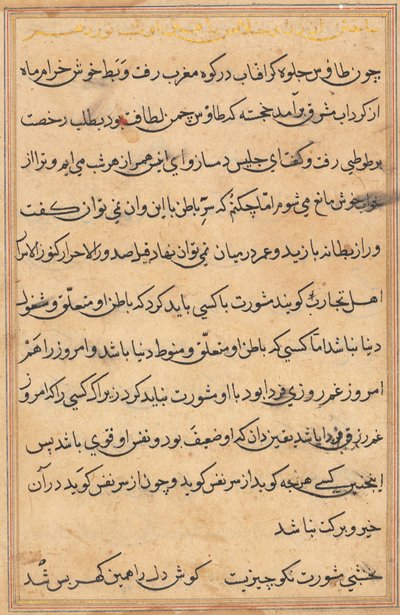 چون طاؤس جلوه گر افتاب در کوه مغرب رفت و بط خوش خرام ماه
از گرداب مشرق برآمد خجسته که طاؤس چمن لطافت بود بطلب رخصت
بر طوطی رفت و گفت ای جلیس دمساز و ای انیس همراز هر شب می ایم و ترا از
خواب خوش مانع می شوم اما چکنم که سر باطن با این و آن نمی توان گفت
و راز بطانه با زید و عمر در میان نمی توان نهاد قیل صدور الاحرار کنوز الاسرار
اهل تجارب گویند مشورت با کسی باید کرد که باطن او متعلق و مشغول
دنیا نباشد اما کسی که باطن او متعلق و منوط دنیا باشد و امروز را هم
امروز غم روزی فردا بود با او مشورت نباید کرد زیراکه کسی را که امروز
غم رزق فردا باشد یقین دان که او ضعیف بود و نفس او قوی باشد پس
اینچنین کسی هرچه گوید از سر نفس گوید و چون از سر نفس گوید در آن
خیر و برکت نباشد
نخشبی مشورت نکو چیزیست گوش دل را همین گهر بس شد